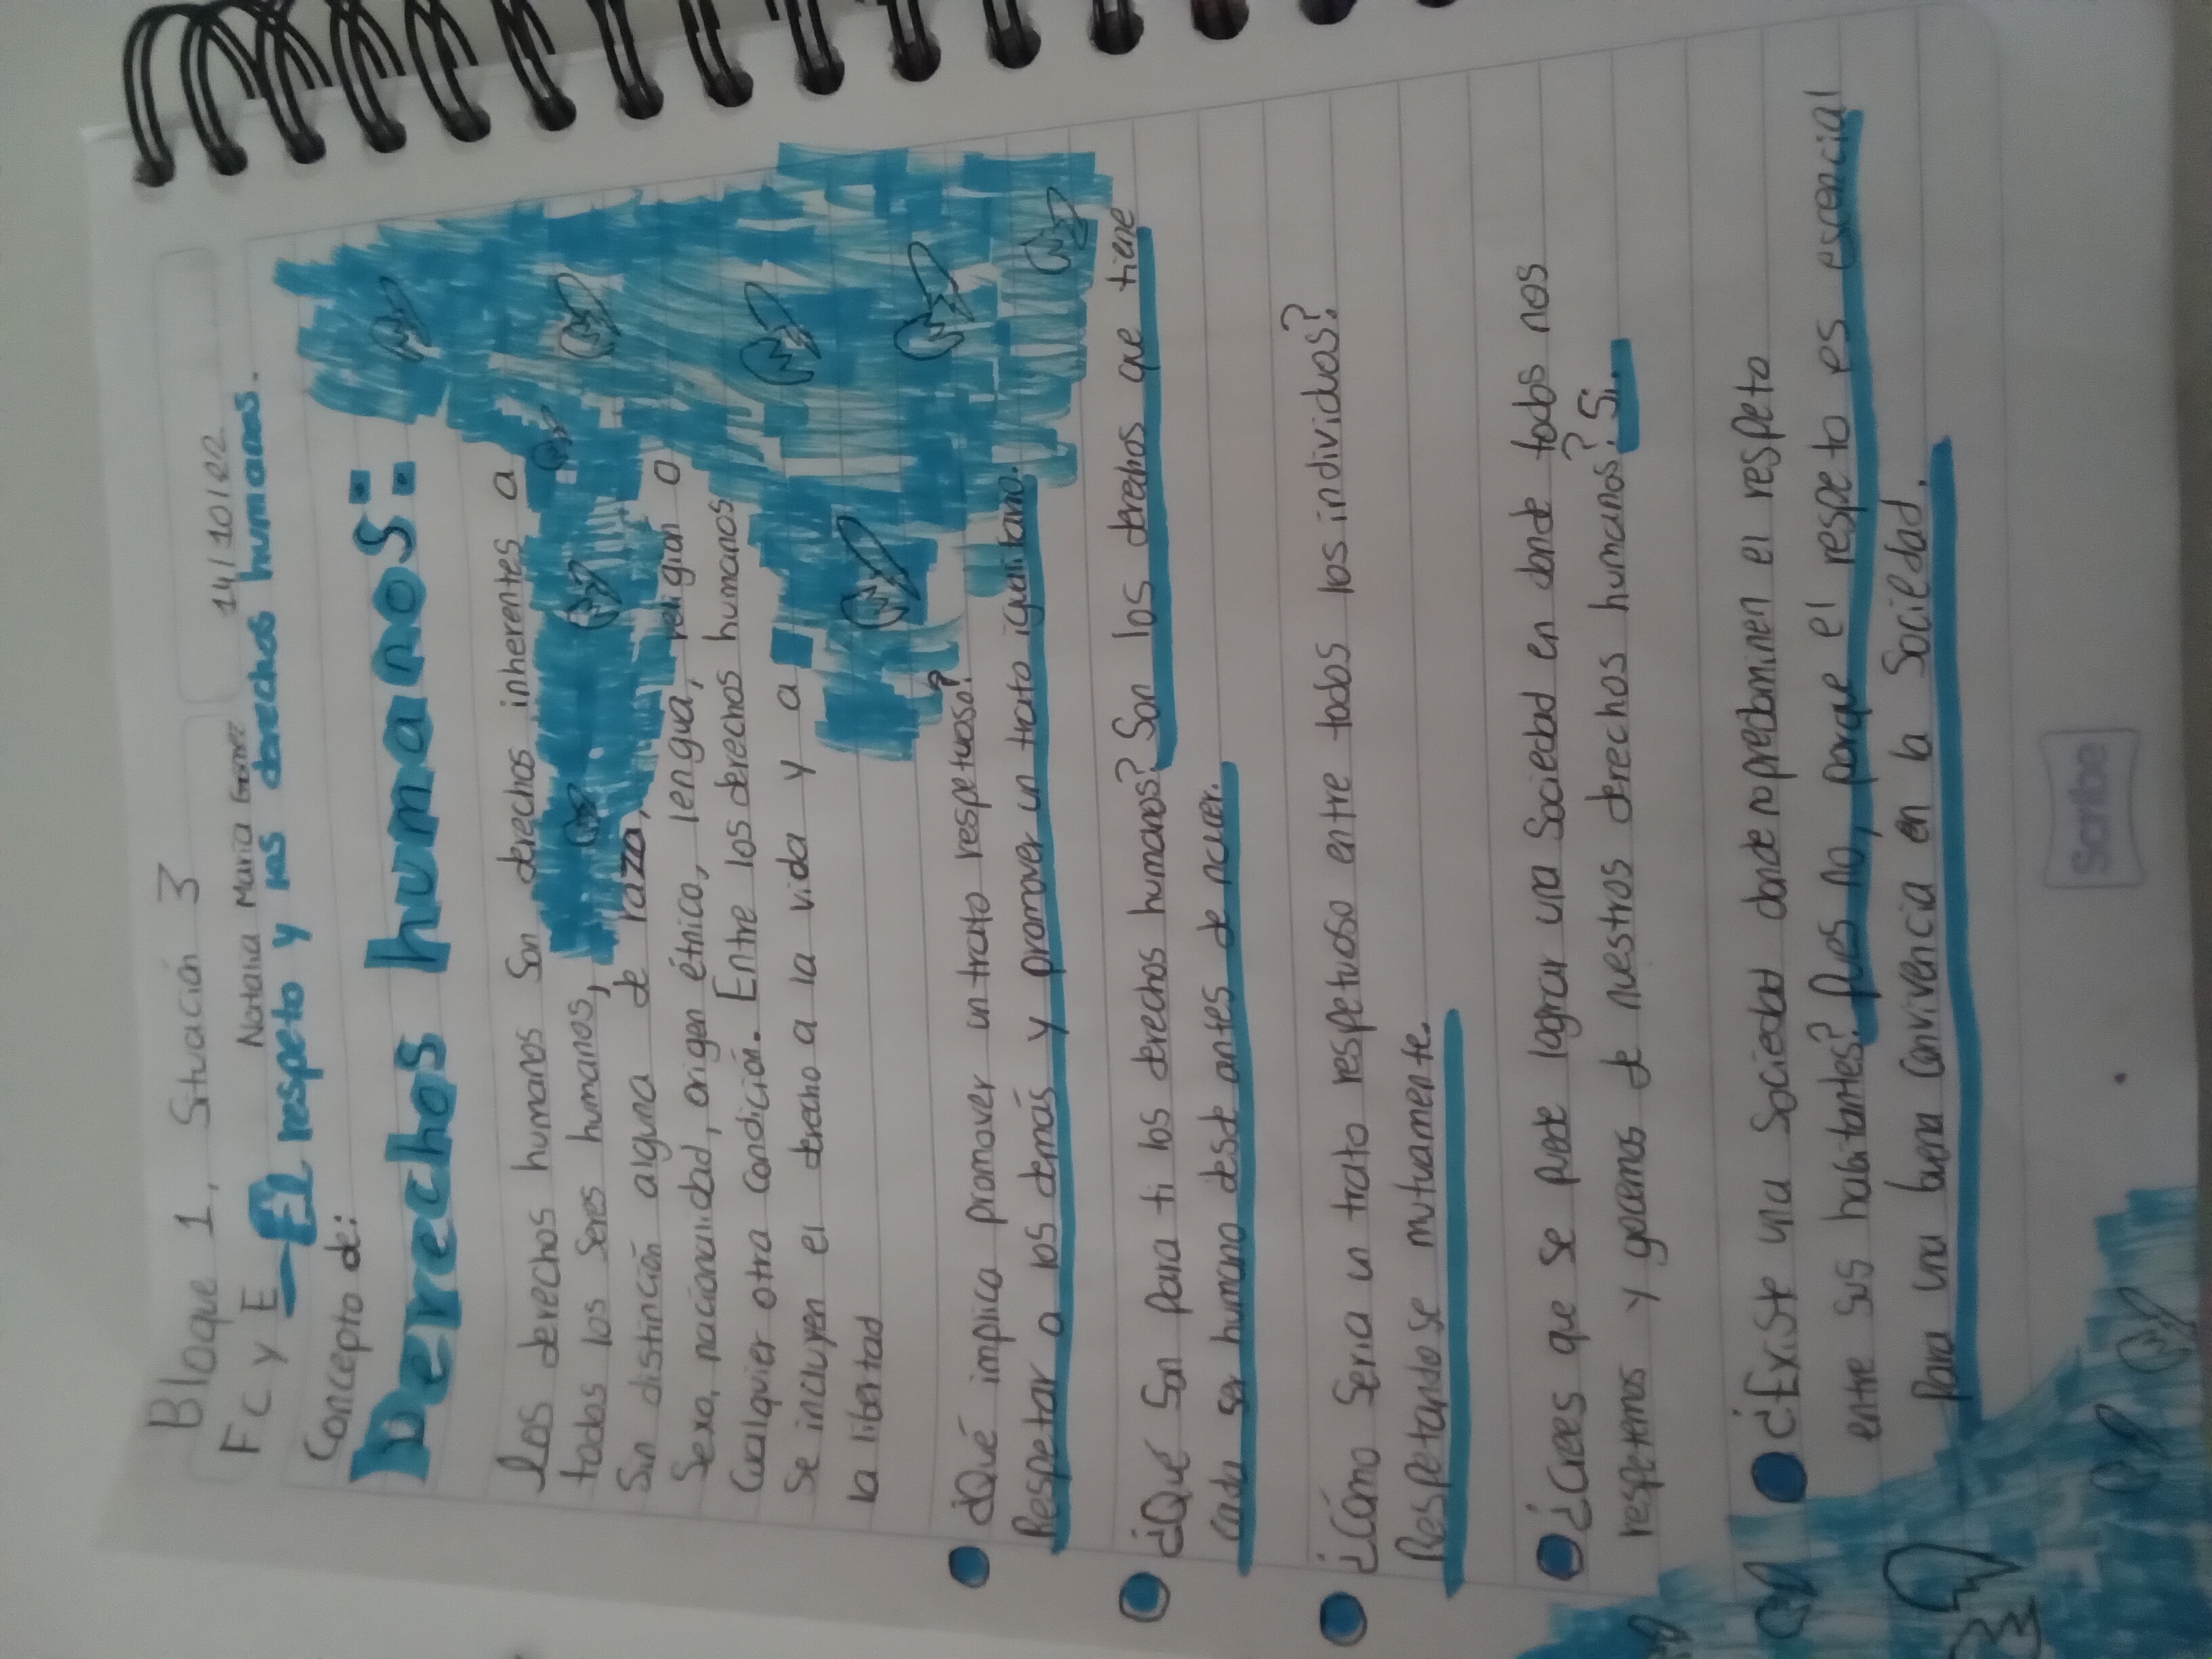 Bloque 1, Situación 3
14/10/22
F c y E
Natalia María Gómez
El respeto y los derechos humanos.
Concepto de:
Derechos humanos:
Los derechos humanos Son derechos inherentes a
todos los seres humanos,
Sin distinción alguna de raza,
Sexo, nacionalidad, origen étnico, lengua, religión o
Cualquier otra condición. Entre los derechos humanos
Se incluyen el derecho a la vida y a
la libertad
¿Qué implica promover un trato respetuoso?
Respetar a los demás y promover un trato igualitario.
¿Qué Son para ti los derechos humanos? Son los derechos que tiene
cada ser humano desde antes de nacer.
¿Cómo Sería un trato respetuoso entre todos los individuos?
Respetandose mutuamente.
¿Crees que se puede lograr una Sociedad en donde todos nos
respetemos y gocemos de nuestros derechos humanos? Si.
¿Existe una Sociedad donde no predominen el respeto
entre sus habitantes? Pues no, porque el respeto es escencial
Para una buena Convivencia en la Sociedad.
Scribe